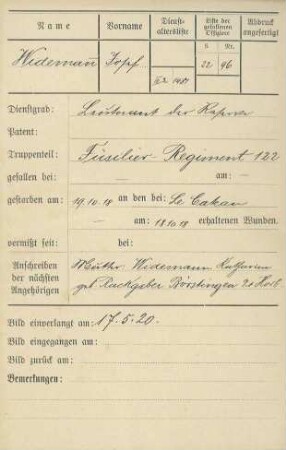 Name Vorname Dienst-altersliste Liste der gefallenen Offiziere Abdruck angefertigt
S. Nr.
Widemañ Josef 22 96
Dienstgrad: Leutnant der Reserve
Patent:
Truppenteil: Füsilier-Regiment 122
gefallen bei: — am: —
gestorben am: 19.10.18 an den bei: Le
— am: 18.10.18 erhaltenen Wunden.
vermißt seit: bei:
Anschreiben der nächsten Angehörigen
Mutter Widemann Katharina
geb. Börstingen
Bild einverlangt am: 17.5.20.
Bild eingegangen am:
Bild zurück am:
Bemerkungen: